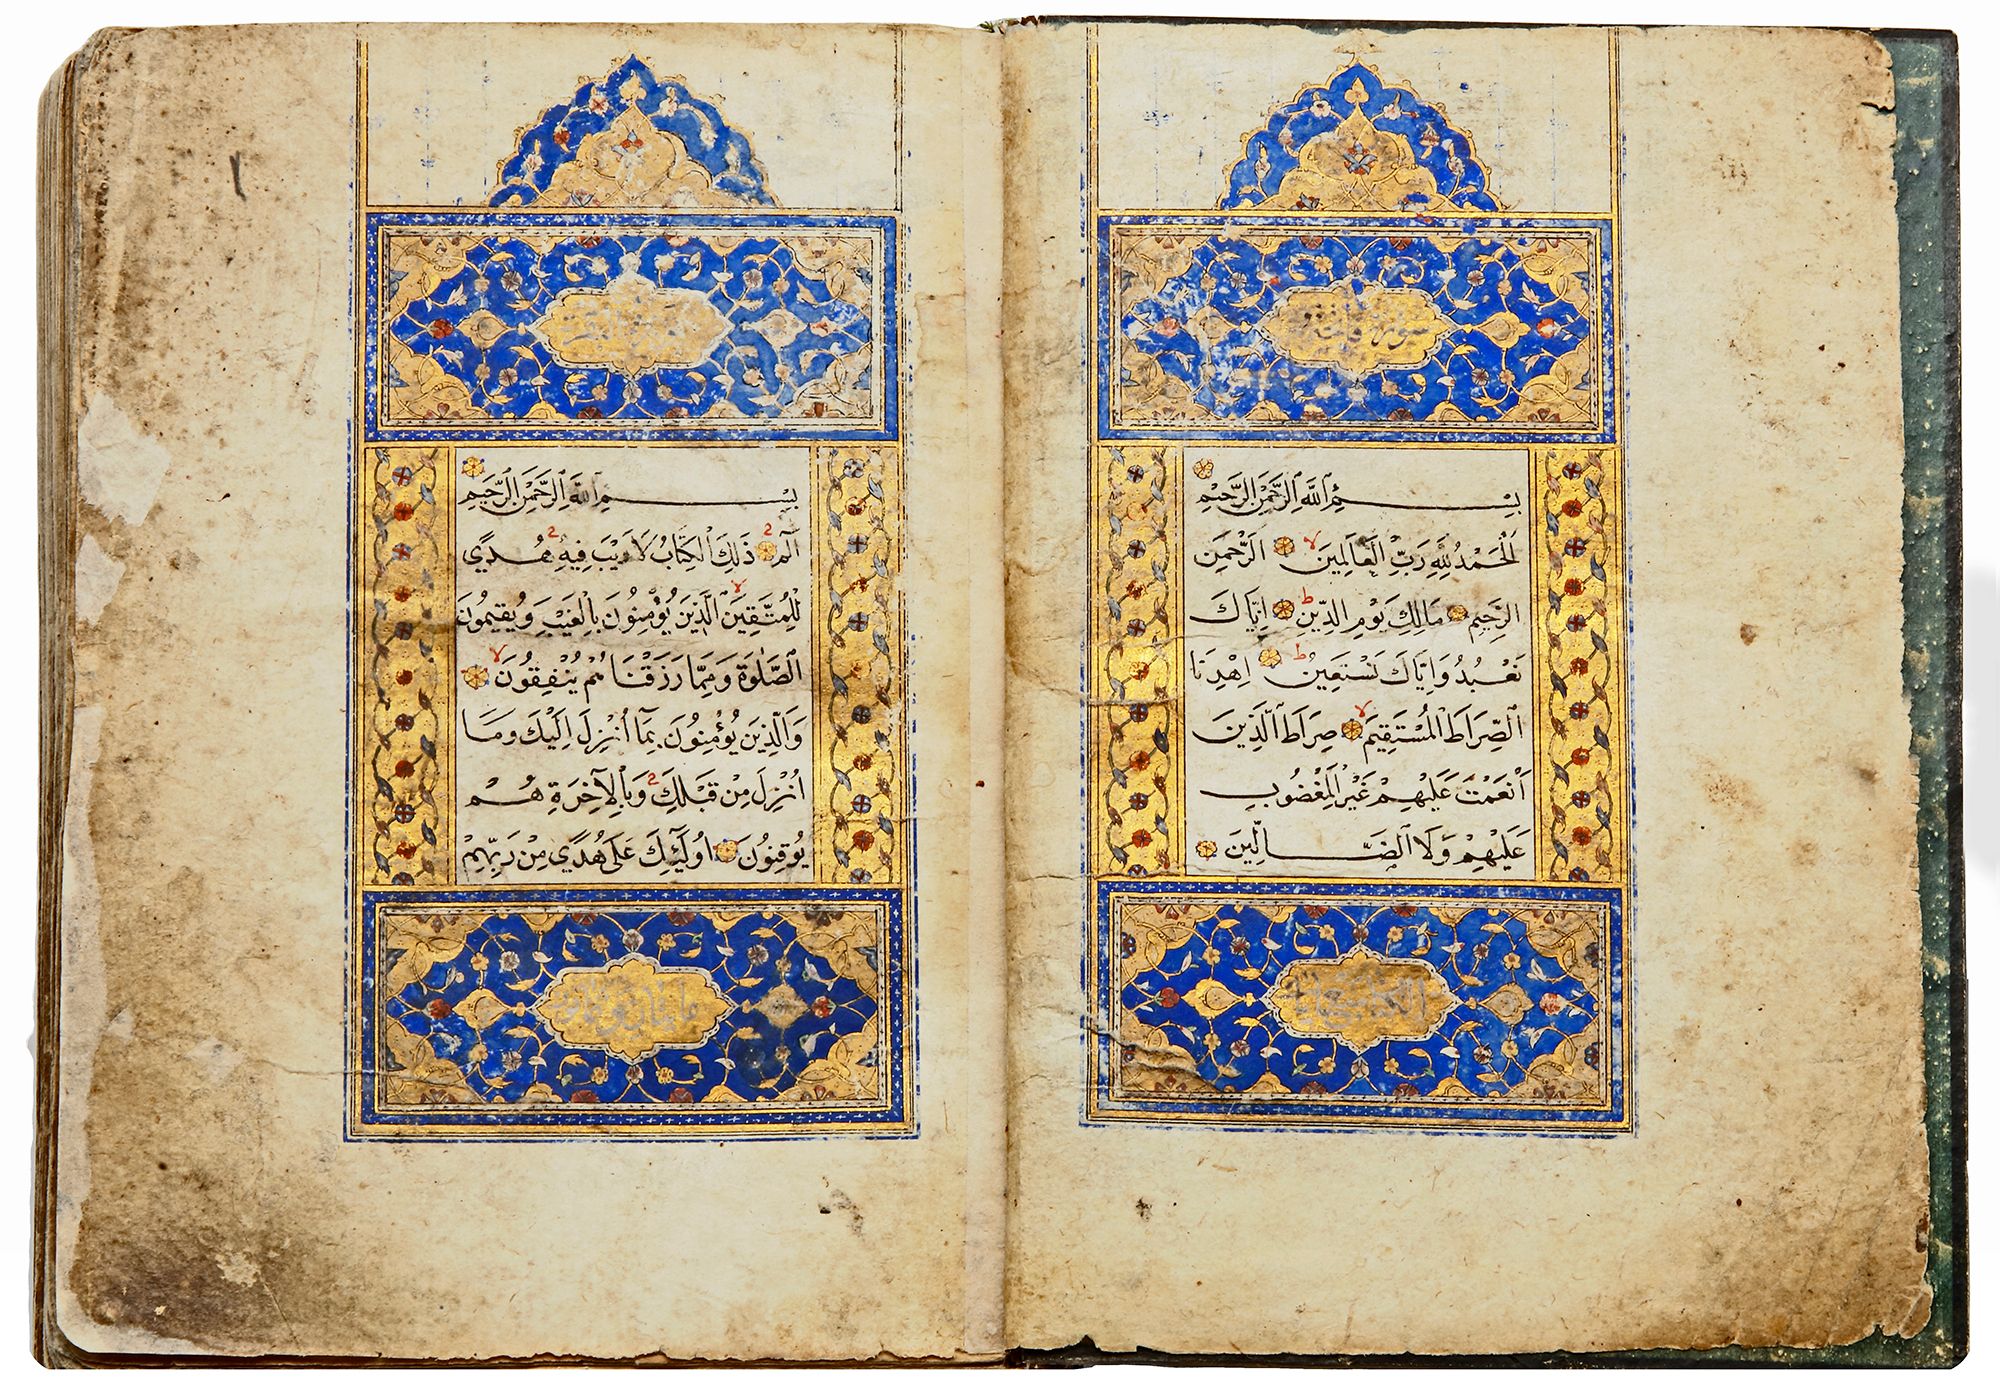 سورة فاتحة
بِسْمِ اللَّهِ الرَّحْمٰنِ الرَّحِيمِ
اَلْحَمْدُ لِلّٰهِ رَبِّ الْعَالَمِينَ لا اَلرَّحْمٰنِ
الرَّحِيمِ مَالِكِ يَوْمِ الدِّينِ ط اِيَّاكَ
نَعْبُدُ وَاِيَّاكَ نَسْتَعِينُ ط اِهْدِنَا
الصِّرَاطَ الْمُسْتَقِيمَ لا صِرَاطَ الَّذِينَ
اَنْعَمْتَ عَلَيْهِمْ غَيْرِ الْمَغْضُوبِ
عَلَيْهِمْ وَلَا الضَّالِّينَ
الكتاب
بِسْمِ اللَّهِ الرَّحْمٰنِ الرَّحِيمِ
الٓمٓ ذٰلِكَ الْكِتَابُ لَا رَيْبَ فِيهِ هُدًى
لِلْمُتَّقِينَ لا الَّذِينَ يُؤْمِنُونَ بِالْغَيْبِ وَيُقِيمُونَ
الصَّلٰوةَ وَمِمَّا رَزَقْنَاهُمْ يُنْفِقُونَ لا
وَالَّذِينَ يُؤْمِنُونَ بِمَا اُنْزِلَ اِلَيْكَ وَمَا
اُنْزِلَ مِنْ قَبْلِكَ وَبِالْاٰخِرَةِ هُمْ
يُوقِنُونَ اُولٰٓئِكَ عَلٰى هُدًى مِنْ رَبِّهِمْ